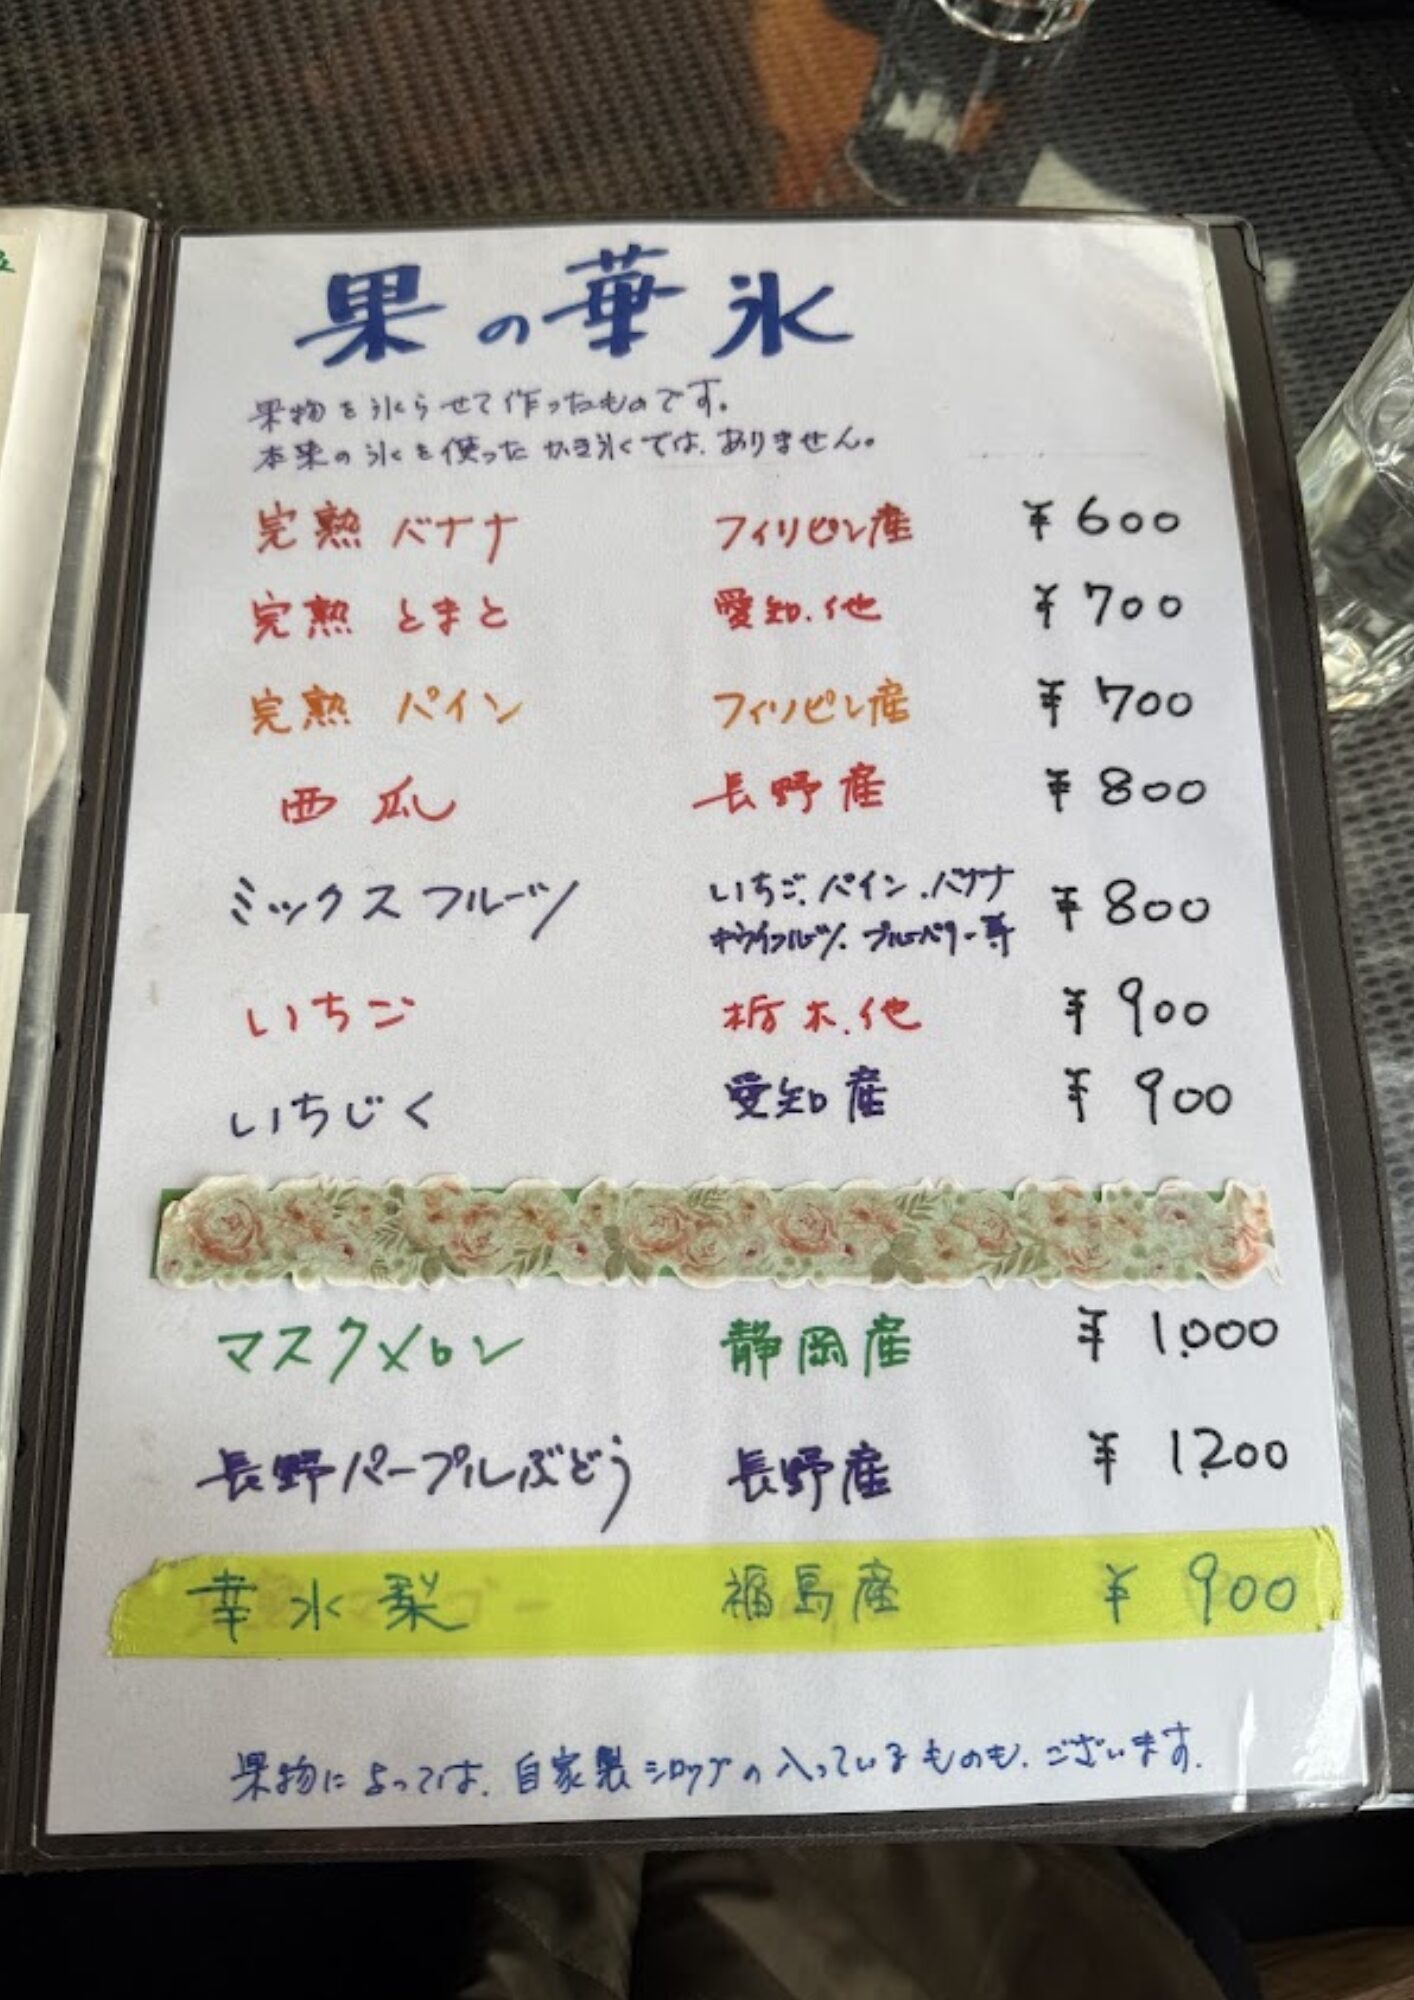 果の華氷
果物を氷らせて作ったものです。
本来の氷を使ったかき氷では、ありません。
完熟 バナナ フィリピン産 ¥600
完熟 とまと 愛知.他 ¥700
完熟 パイン フィリピン産 ¥700
西瓜 長野産 ¥800
ミックスフルーツ いちご、パイン、バナナ ¥800
キウイフルーツ、ブルーベリー等
いちご 栃木.他 ¥900
いちじく 愛知産 ¥900
マスクメロン 静岡産 ¥1.000
長野パープルぶどう 長野産 ¥1.200
幸水梨 福島産 ¥900
果物によっては、自家製シロップの入っているものも、ございます。